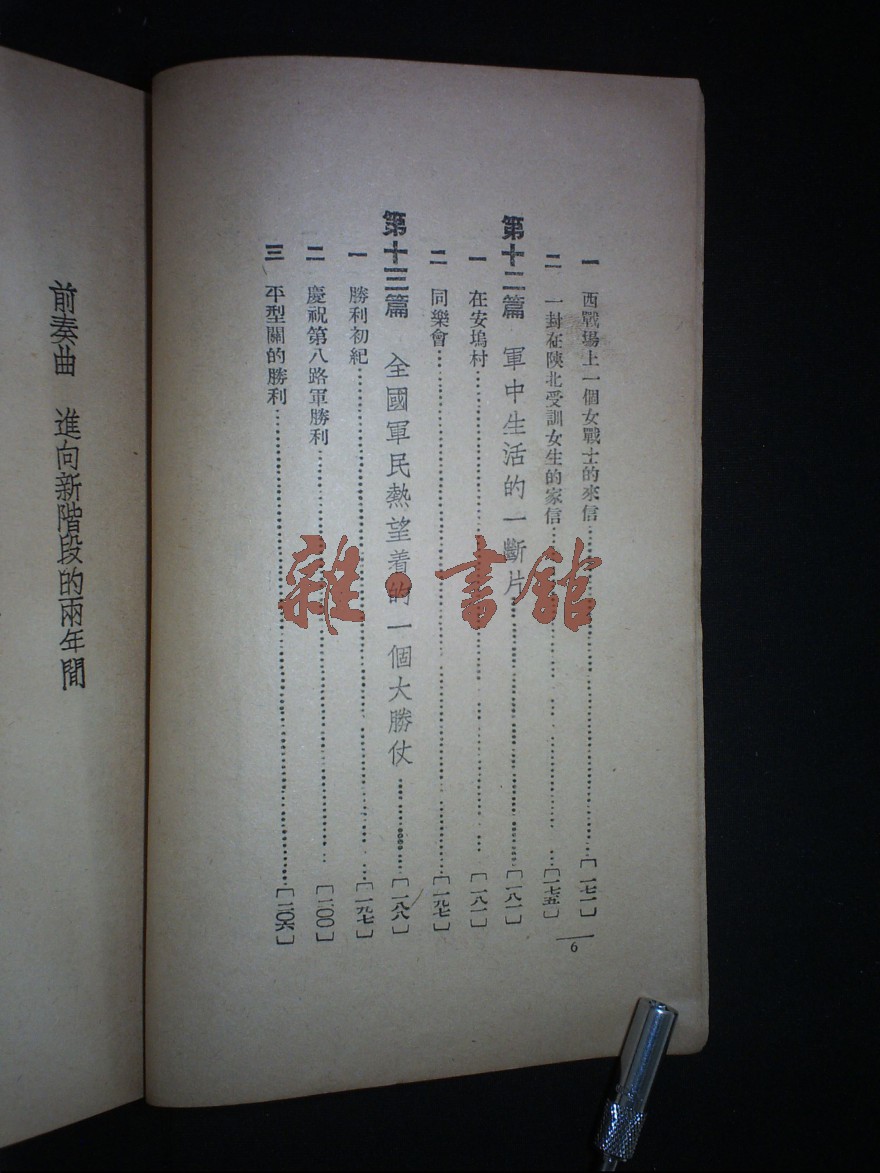 一 西戰場上一個女戰士的來信……〔一七一〕
二 一封在陝北受訓女生的家信……〔一七五〕
第十二篇 軍中生活的一斷片……〔一八一〕
一 在安塢村……〔一八一〕
二 同樂會……〔一九七〕
第十三篇 全國軍民熱望着的一個大勝仗……〔一八八〕
一 勝利初紀……〔一九七〕
二 慶祝第八路軍勝利……〔二〇〇〕
三 平型關的勝利……〔二〇六〕
6
前奏曲 進向新階段的兩年間
雜·書館